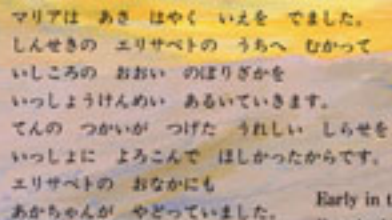 マリアは あさ はやく いえを でました。
しんせきの エリサベトの うちへ むかって
いしころの おおい のぼりざかを
いっしょうけんめい あるいていきます。
てんの つかいが つげた うれしい しらせを
いっしょに よろこんで ほしかったからです。
エリサベトの おなかにも
あかちゃんが やどっていました。
Early in